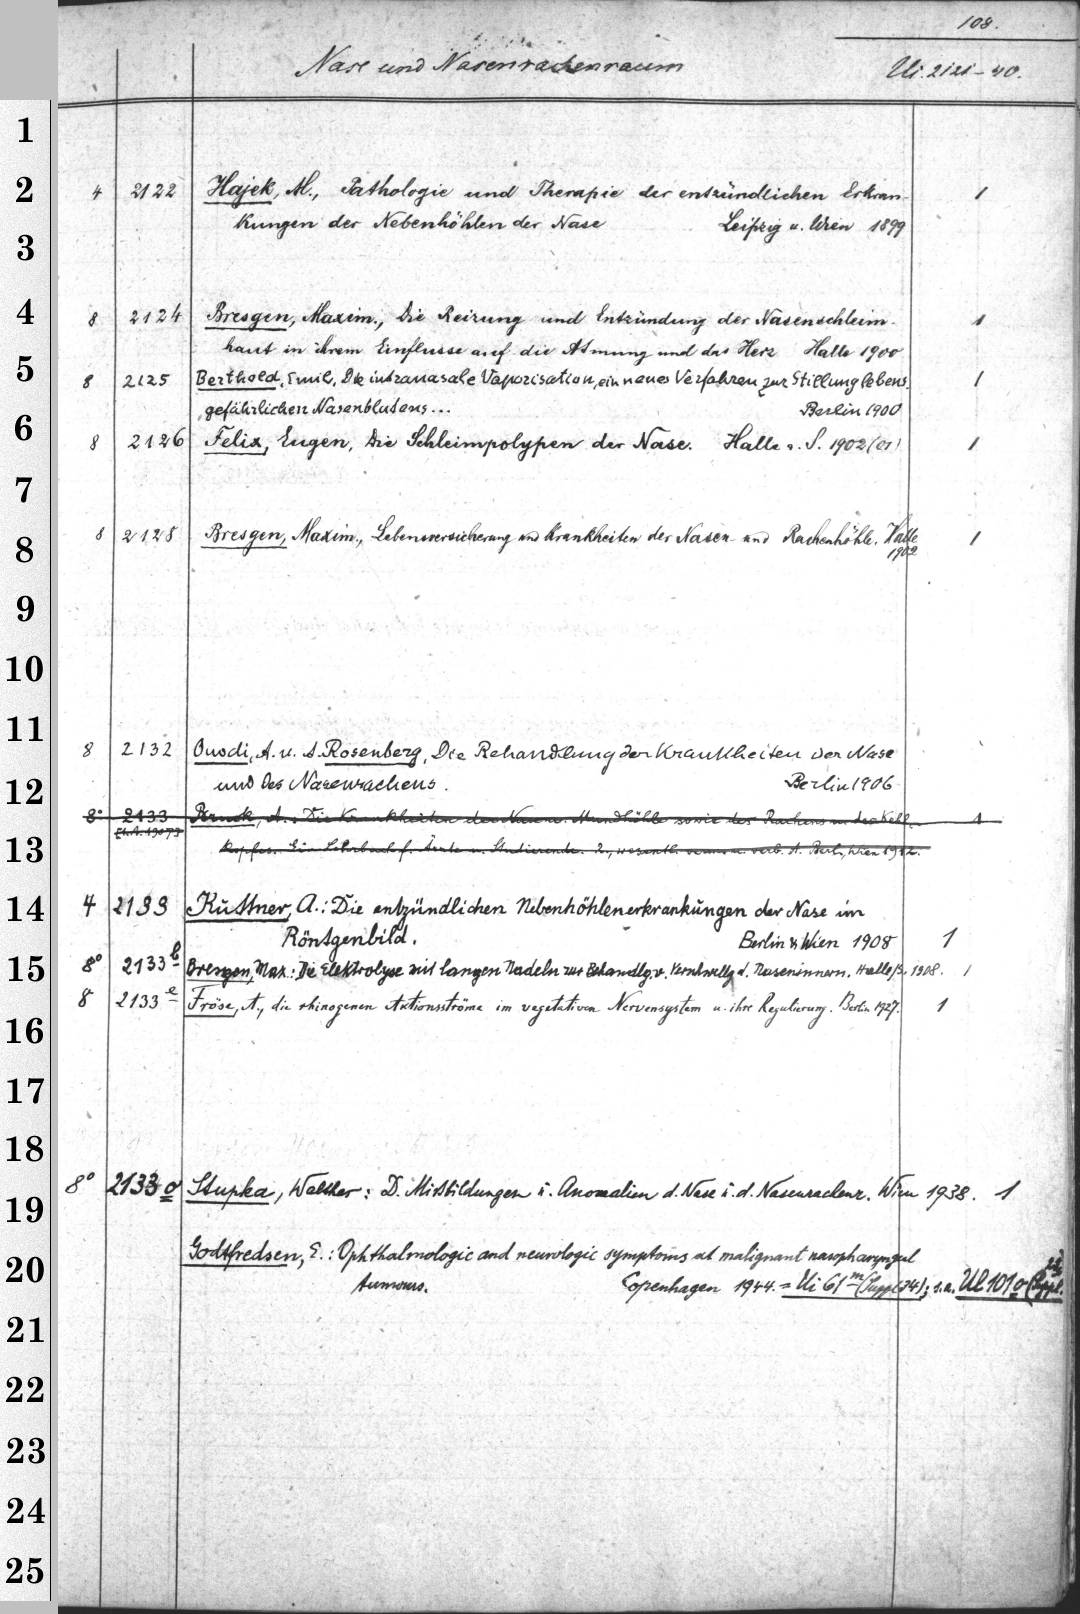 108.
Nase und Nasenrachenraum Ui. 2121-40.
1
2 4 2122 Hajek, M., Pathologie und Therapie der entzündlichen Erkran- 1
kungen der Nebenhöhlen der Nase Leipzig u. Wien 1899
3
4 8 2124 Bresgen, Maxim., Die Reizung und Entzündung der Nasenschleim- 1
haut in ihrem Einflusse auf die Atmung und das Herz Halle 1900
5 8 2125 Berthold, Emil, Die intranasale Vaporisation, ein neues Verfahren zur Stillung lebens- 1
gefährlichen Nasenblutens... Berlin 1900
6 8 2126 Felix, Eugen, Die Schleimpolypen der Nase. Halle a. S. 1902 (01) 1
7
8 8 2128 Bresgen, Maxim., Lebensversicherung und Krankheiten der Nasen- und Rachenhöhle. Halle 1
1902
9
10
11 8 2132 Onodi, A. u. A. Rosenberg, Die Behandlung der Krankheiten der Nase 1
12 und des Nasenrachens. Berlin 1906
8° 2133 A.: Die Krankheiten der Nase u. Mundhöhle sowie des Rachens u. des Kehl- 1
13 kopfes. Ein Lehrbuch f. Ärzte u. Studierende. 2., wesentl. verb. A. Berl., Wien 1912.
14 4 2133 Kuttner, A.: Die entzündlichen Nebenhöhlenerkrankungen der Nase im
Röntgenbild. Berlin & Wien 1908 1
15 8° 2133b Bresgen, Max.: Die Elektrolyse mit langen Nadeln zur Behandlg. v. d. Naseninnern. Halle/S. 1908. 1
8° 2133e Fröse, A., die rhinogenen Aktionsströme im vegetativen Nervensystem u. ihre Regulierung. Berlin 1927. 1
16
17
18
8° 2133o Stupka, Walther: D. Mißbildungen u. Anomalien d. Nase u. d. Nasenrachenr. Wien 1938. 1
19
Godtfredsen, E.: Ophthalmologic and neurologic symptoms at malignant nasopharyngeal
20 tumours. Copenhagen 1944. = Ui 61m (Suppl. 34); s.a. Ul 101o (Suppl.
21
22
23
24
25